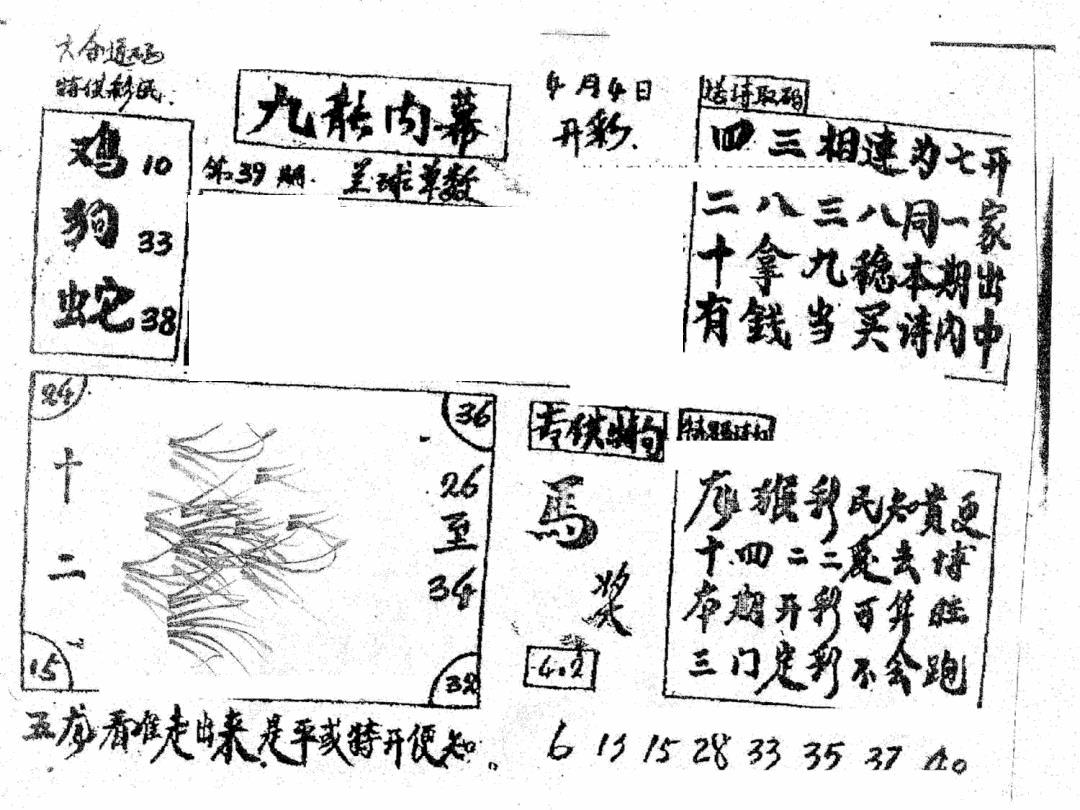 六合通码
特供彩民.
鸡 10
狗 33
蛇 38
九龙内幕
第39期.
全球单数
4月4日
开彩.
送诗取码
四三相连为七开
二八三八同一家
十拿九稳本期出
有錢当买诗内中
24
36
十
二
26
至
34
15
32
专供特句
馬
奖
4.2
龙猴彩民知贵更
十四二二爱去博
本期开彩可算胜
三门定彩不会跑
五龙看谁走出来是平或特开便知.
6 13 15 28 33 35 37 40